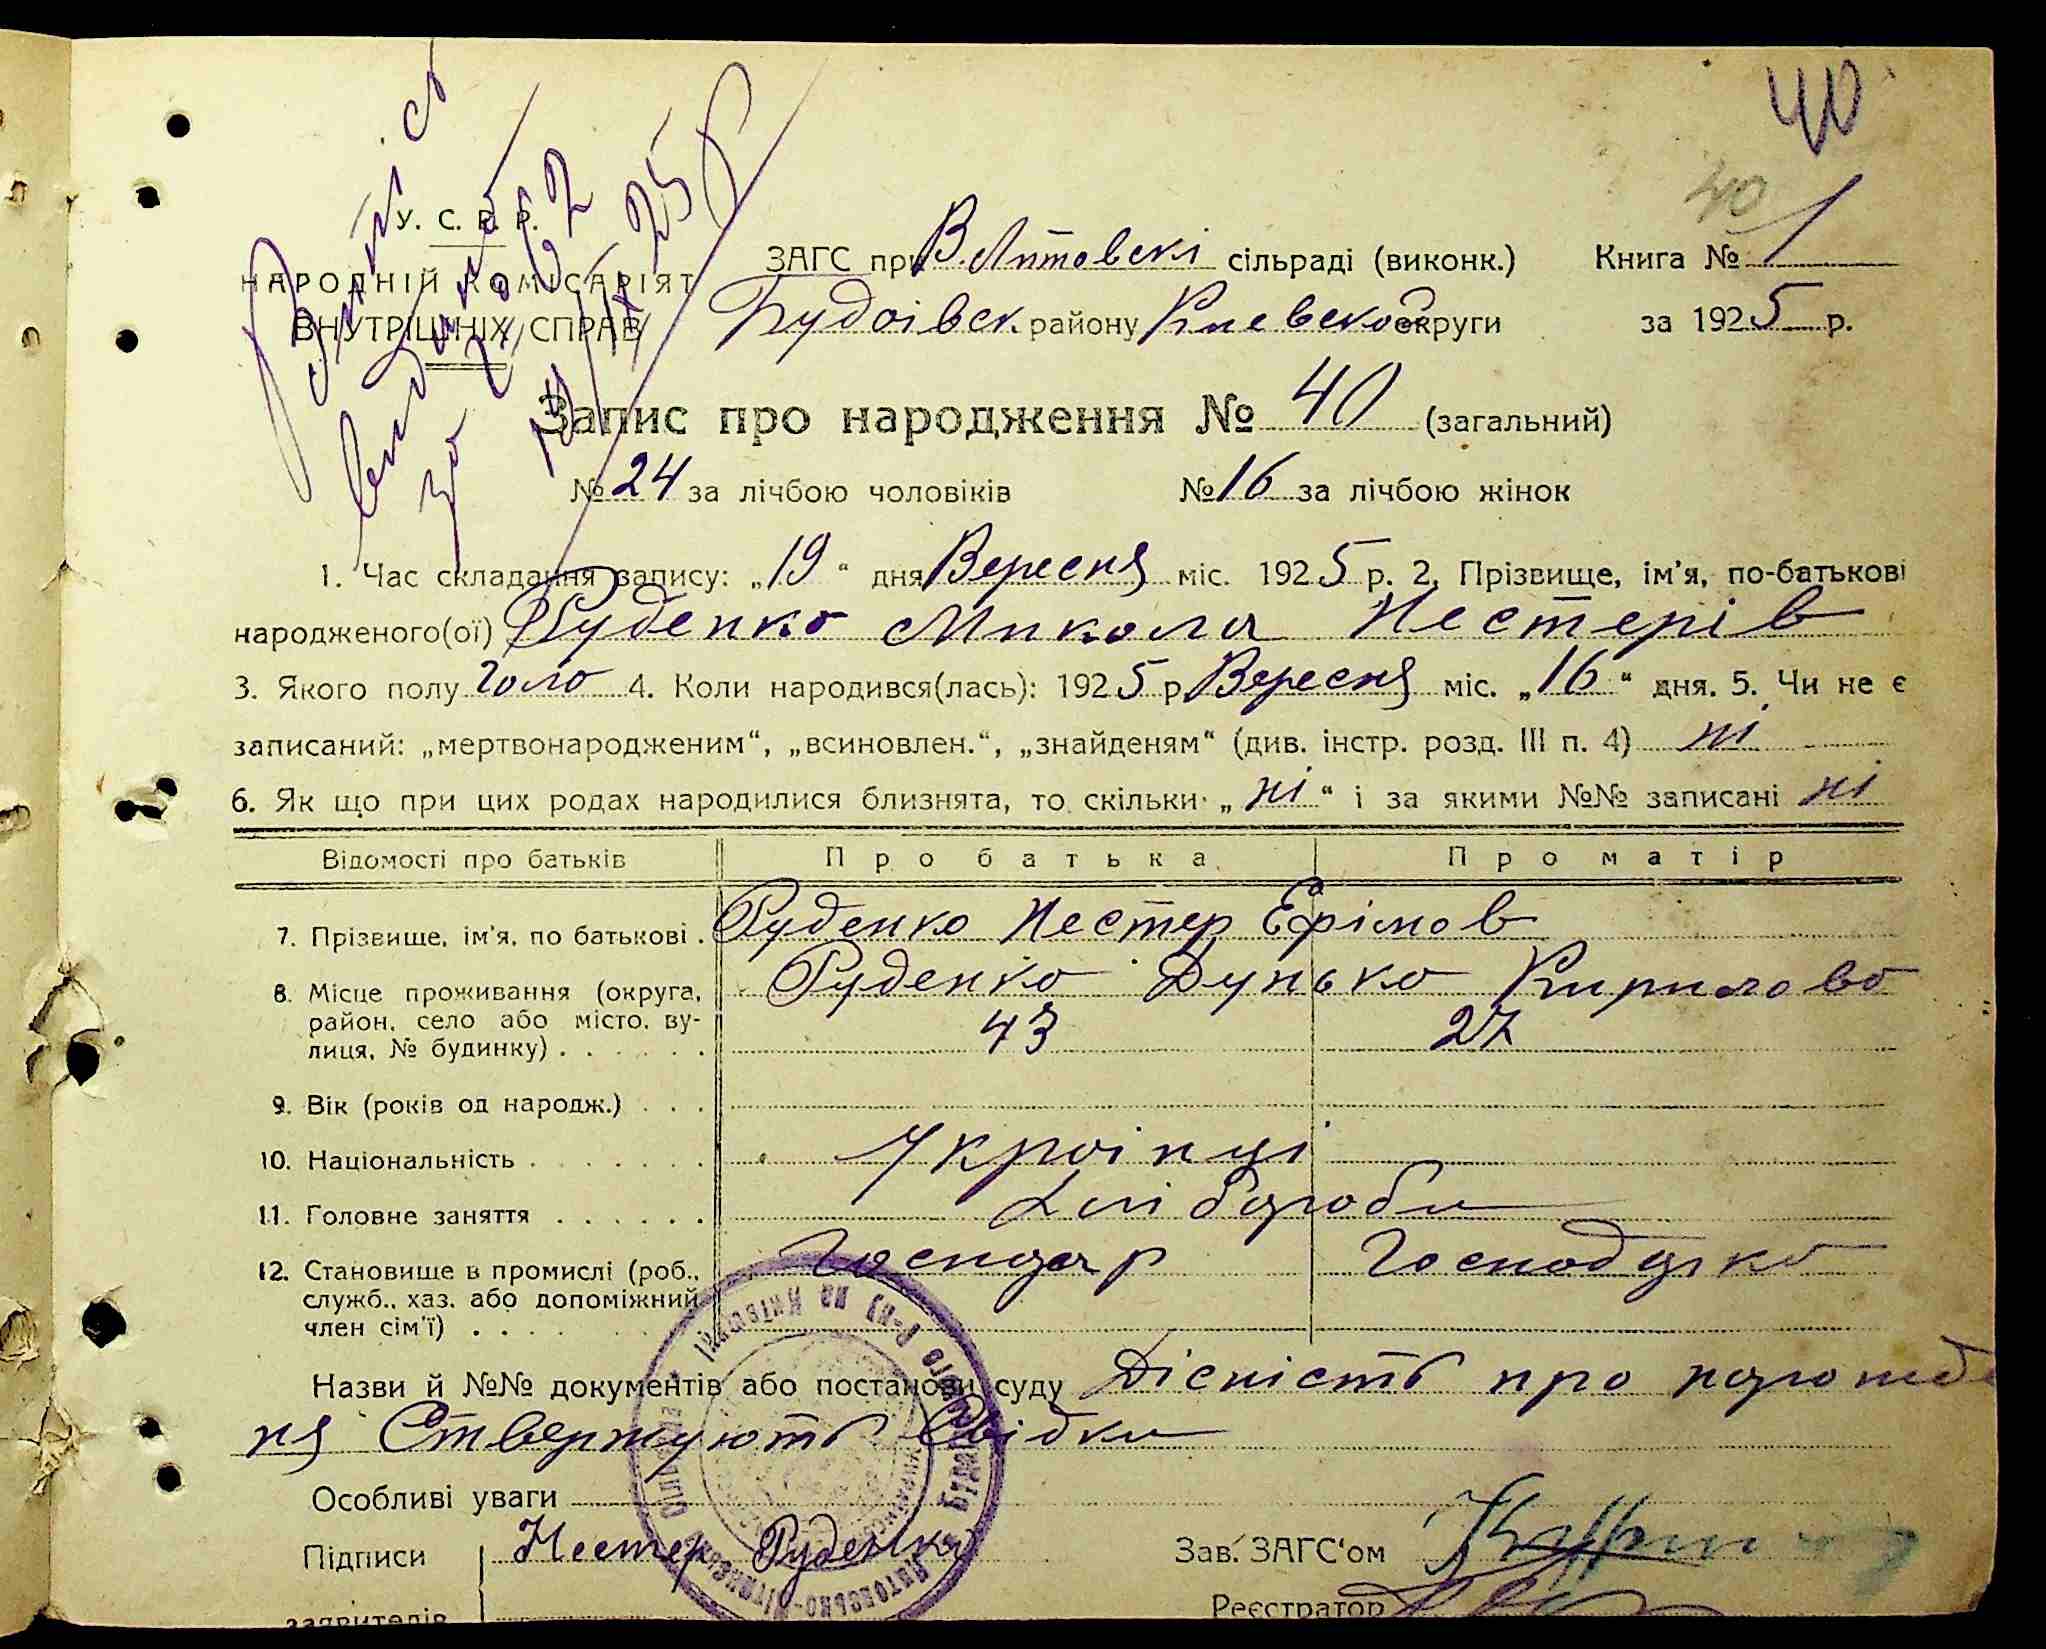 40
40
Випись
видано
за № 62
19/IX 25 р
У. С. Р. Р.
НАРОДНІЙ КОМІСАРІЯТ
ВНУТРІШНІХ СПРАВ
ЗАГС при В. Литовскі сільраді (виконк.) Книга № 1
Будаівск. району Киевскоб округи за 1925 р.
Запис про народження № 40 (загальний)
№ 24 за лічбою чоловіків № 16 за лічбою жінок
1. Час складання запису: „19“ дня Вересня міс. 1925 р. 2. Прізвище, ім'я, по-батькові
народженого(ої) Руденко Микола Нестерів
3. Якого полу чоло 4. Коли народився(лась): 1925 р. Вересня міс. „16“ дня. 5. Чи не є
записаний: „мертвонародженим“, „всиновлен.“, „знайденям“ (див. інстр. розд. III п. 4) ні
6. Як що при цих родах народилися близнята, то скільки „ні“ і за якими №№ записані ні
Відомості про батьків Про батька Про матір
7. Прізвище, ім'я, по батькові . Руденко Нестер Ефімов
8. Місце проживання (округа, Руденко Дунька Кирилова
район, село або місто, ву- 43 27
лиця, № будинку) . . . . . .
9. Вік (років од народж.) . . .
10. Національність . . . . . . . Украінці
11. Головне заняття . . . . . . Хліборобы
12. Становище в промислі (роб., Господар Господарка
служб., хаз. або допоміжний
член сім'ї) . . . .
Назви й №№ документів або постанови суду Дісність про нарожде
ня Ствержують Свідки
Особливі уваги
Підписи Нестер Руденко Зав. ЗАГС'ом
заявителів Реєстратор